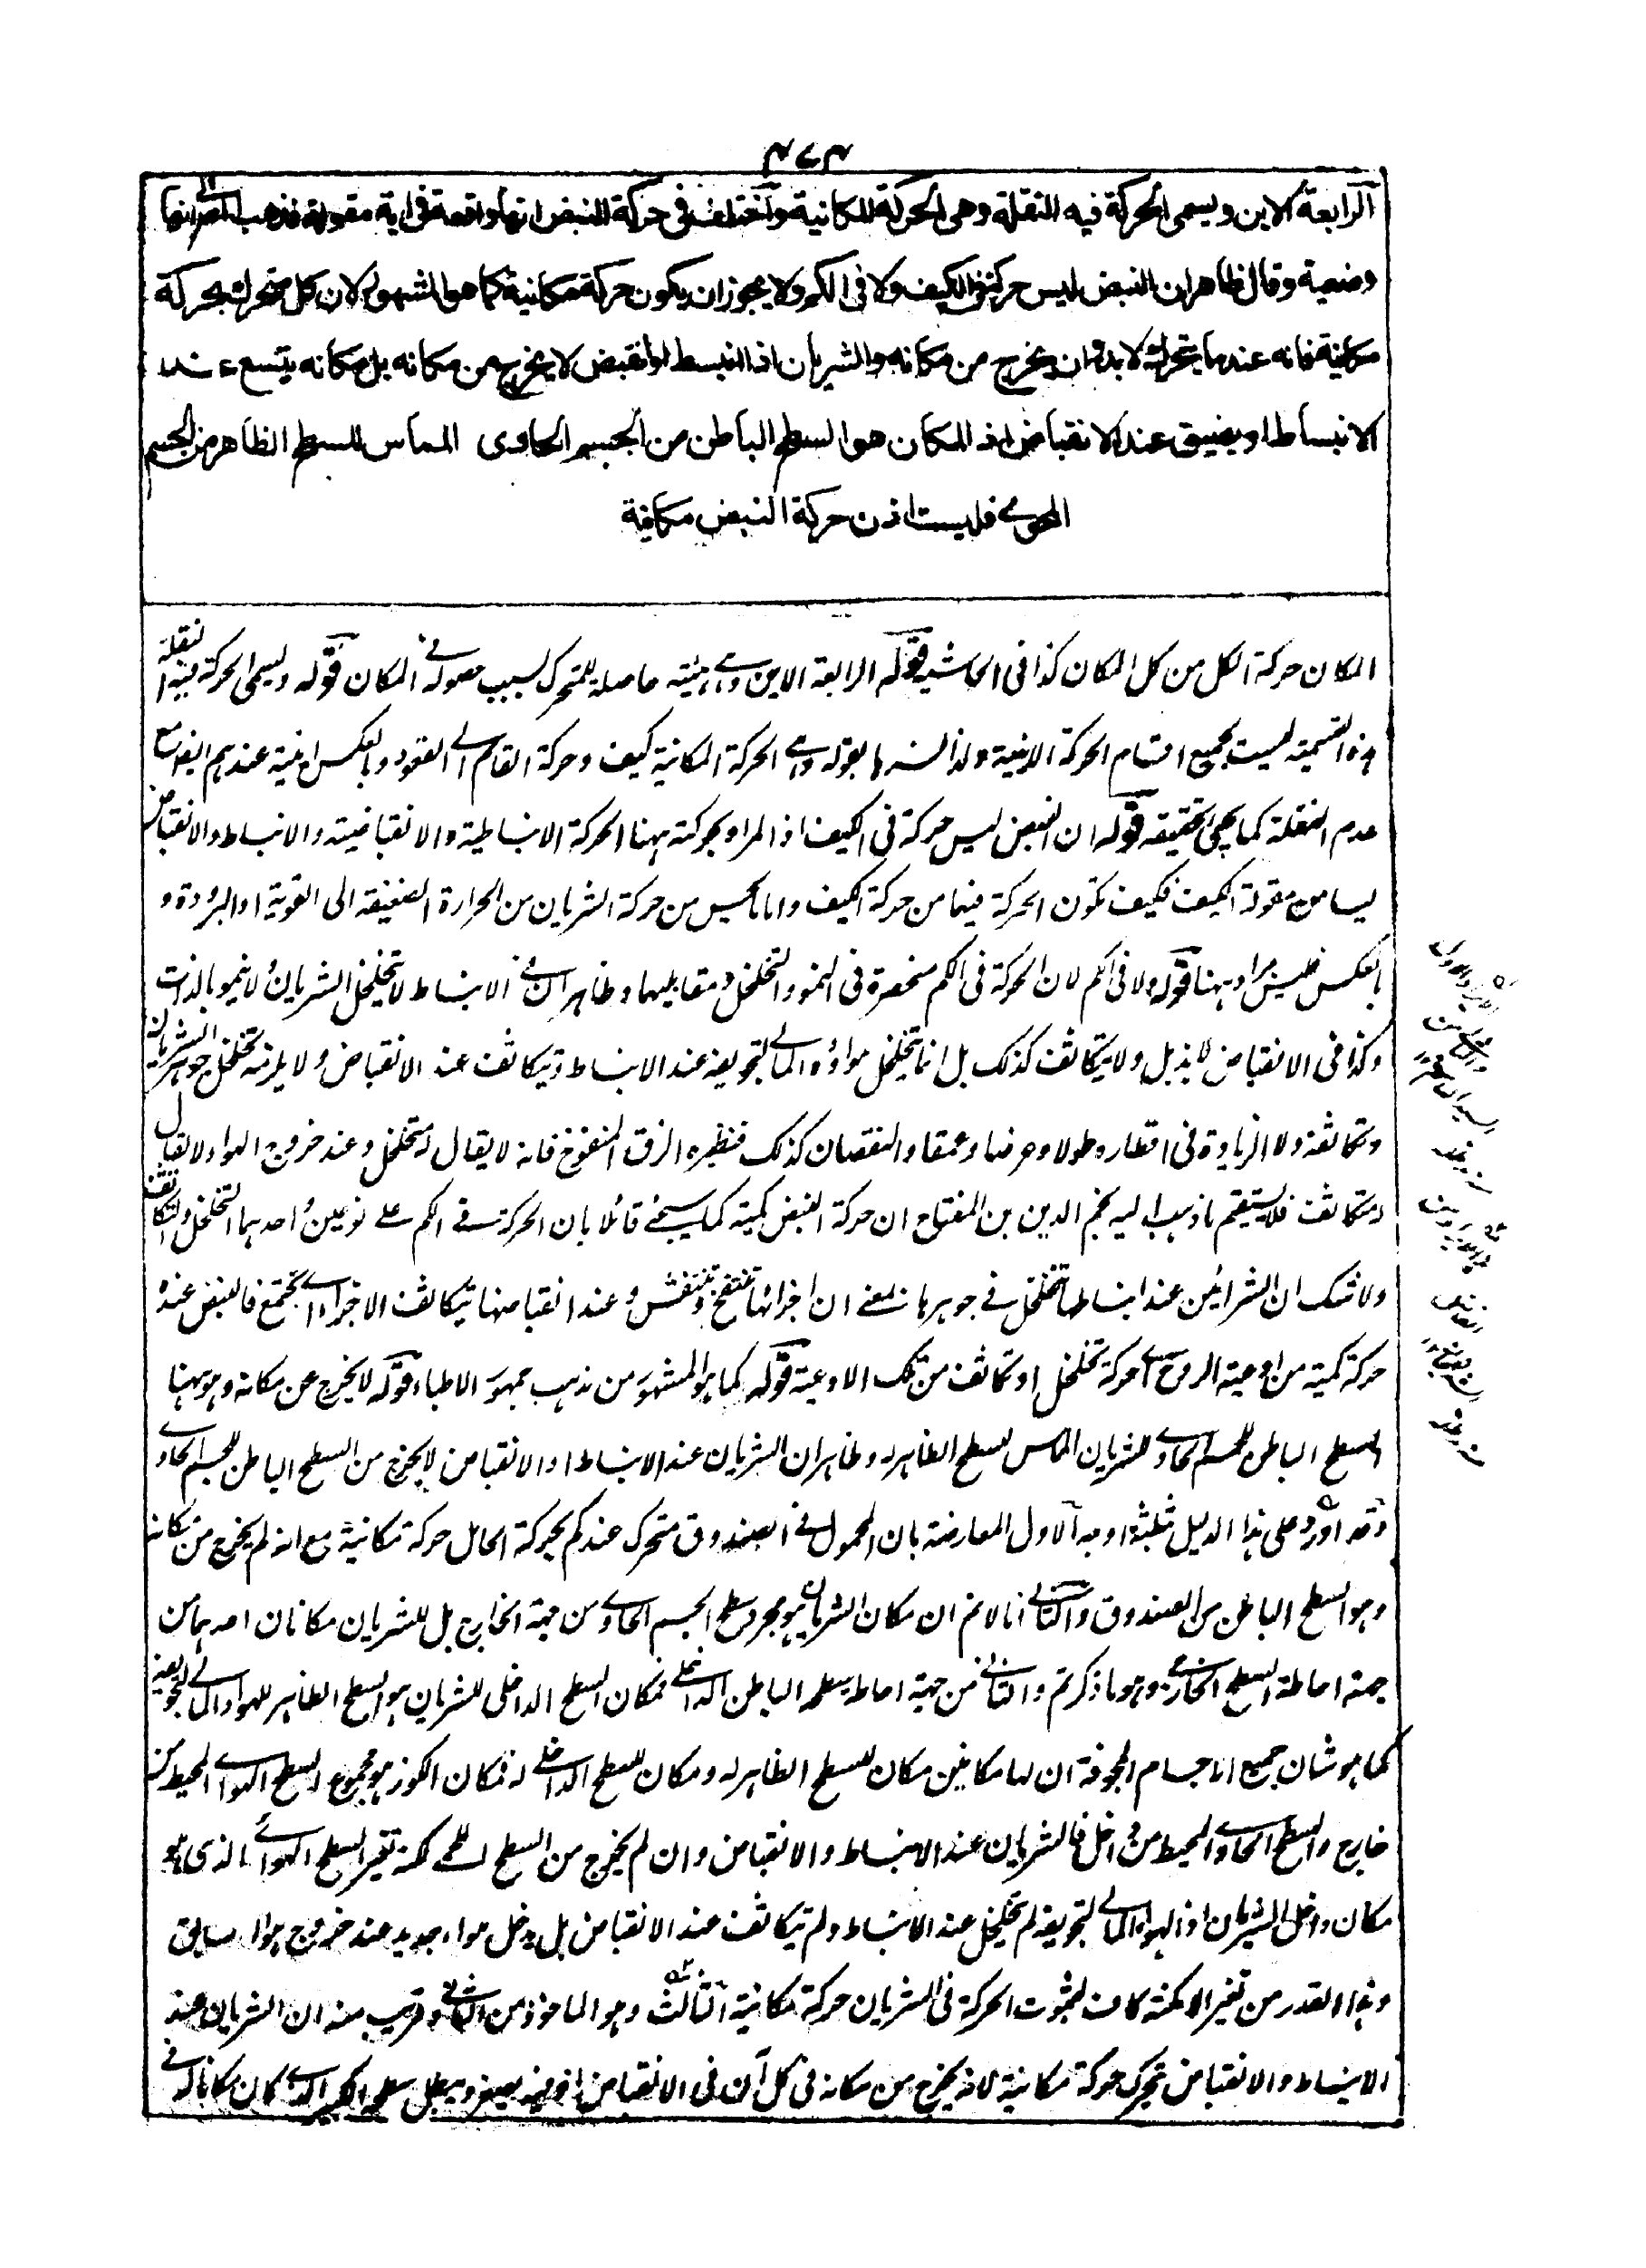 ٣٧٣
الرابعة الاين ويسمى الحركة فيه النقلة وهى الحركة المكانية واختلف فى حركة النبض انها واقعة فى اية مقولة فذهب المصر الى انها
وضعية وقال ظاهر ان النبض ليس حركة فى الكيف ولا فى الكم ولا يجوز ان يكون حركة مكانية كما هو المشهور لان كل متحرك بحركة
مكانية فانه عندما يتحرك لابد وان يخرج من مكانه والشريان اذا انبسط او انقبض لا يخرج من مكانه بل مكانه يتسع عند
الانبساط او يضيق عند الانقباض اذ المكان هو السطح الباطن من الجسم الحاوى المماس للسطح الظاهر من الجسم
المحوى فليست اذن حركة النبض مكانية
المكان حركة الكل من كل المكان كذا فى الحاشية قوله الرابعة الاين وهى هيئة حاصلة للمتحرك بسبب حصوله فى المكان قوله ويسمى الحركة فيه النقلة
هذه التسمية ليست لجميع اقسام الحركة الاينية ولذا فسرها بقوله وهى الحركة المكانية كيف وحركة القائم الى القعود وبالعكس اينية عندهم ايضا مع
عدم النقلة كما يجئ تحقيقه قوله ان النبض ليس حركة فى الكيف اذ المراد بحركته ههنا الحركة الانبساطية والانقباضية والانبساط والانقباض
ليسا من مقولة الكيف فكيف تكون الحركة فيهما من حركة الكيف واما ما يحس من حركة الشريان من الحرارة الضعيفة الى القوية او البرودة و
بالعكس فليس مرادا ههنا قوله ولا فى الكم لان الحركة فى الكم منحصرة فى النمو والتخلخل ومقابليهما وظاهر ان فى الانبساط لا يتخلخل الشريان ولا ينمو بالذات
وكذا فى الانقباض لا يذبل ولا يتكاثف كذلك بل انما يتخلخل هواؤه المالى لتجويفه عند الانبساط ويتكاثف عند الانقباض ولا يلزمه تخلخل جوهر الشريان
وتكاثفه ولا الزيادة فى اقطاره طولا وعرضا وعمقا والنقصان كذلك فنظيره الزق المنفوخ فانه لا يقال له متخلخل وعند خروج الهواء لا يقال
له متكاثف فلا يستقيم ما ذهب اليه نجم الدين بن المفتاح ان حركة النبض كمية كما سيجئ قائلا بان الحركة فى الكم على نوعين احدهما التخلخل والتكاثف
ولا شك ان الشرائين عند انبساطها تتخلخل فى جوهرها بمعنى ان اجزائها تنتفخ وتنتفش وعند انقباضها تتكاثف الاجزاء اى تجتمع فالنبض عنده
حركة كمية من اوعية الروح اى حركة تخلخل او تكاثف من تلك الاوعية قوله كما هو المشهور من مذهب جمهور الاطباء قوله لا يخرج عن مكانه وهو ههنا
السطح الباطن للجسم الحاوى للشريان المماس لسطح الظاهر له وظاهر ان الشريان عند الانبساط او الانقباض لا يخرج من السطح الباطن للجسم الحاوى
وقد اورد على هذا الدليل ثلثة اوجه الاول المعارضة بان المحمول فى الصندوق متحرك عندكم بحركة الحامل حركة مكانية مع انه لم يخرج من مكانه
وهو السطح الباطن من الصندوق والثانى انا لا نم ان مكان الشريان هو مجرد سطح الجسم الحاوى من جهة الخارج بل للشريان مكانان احدهما من
جهة احاطة السطح الخارجى وهو ما ذكرتم والثانى من جهة احاطة سطحه الباطن الداخلى فمكان السطح الداخلى للشريان هو السطح الظاهر للهواء المالى لتجويفه
كما هو شان جميع الاجسام المجوفة ان لها مكانين مكان للسطح الظاهر له ومكان للسطح الداخلى له فمكان الكوز هو مجموع السطح الهوائى المحيط من
خارج والسطح الحاوى المحيط من داخل فالشريان عند الانبساط والانقباض وان لم يخرج من السطح اللحمى لكنه تغير السطح الهوائى الذى هو
مكان داخل الشريان اذ الهواء المالى لتجويفه لم يتخلخل عند الانبساط ولم يتكاثف عند الانقباض بل يدخل هواء جديد عند خروج هواء سابق
وهذا القدر من تغير الامكنة كاف لثبوت الحركة فى الشريان حركة مكانية الثالث وهو الماخوذ من الثانى وقريب منه ان الشريان عند
الانبساط والانقباض يتحرك حركة مكانية لانه يخرج من مكانه فى كل آن فى الانقباض كان مكانا له فى